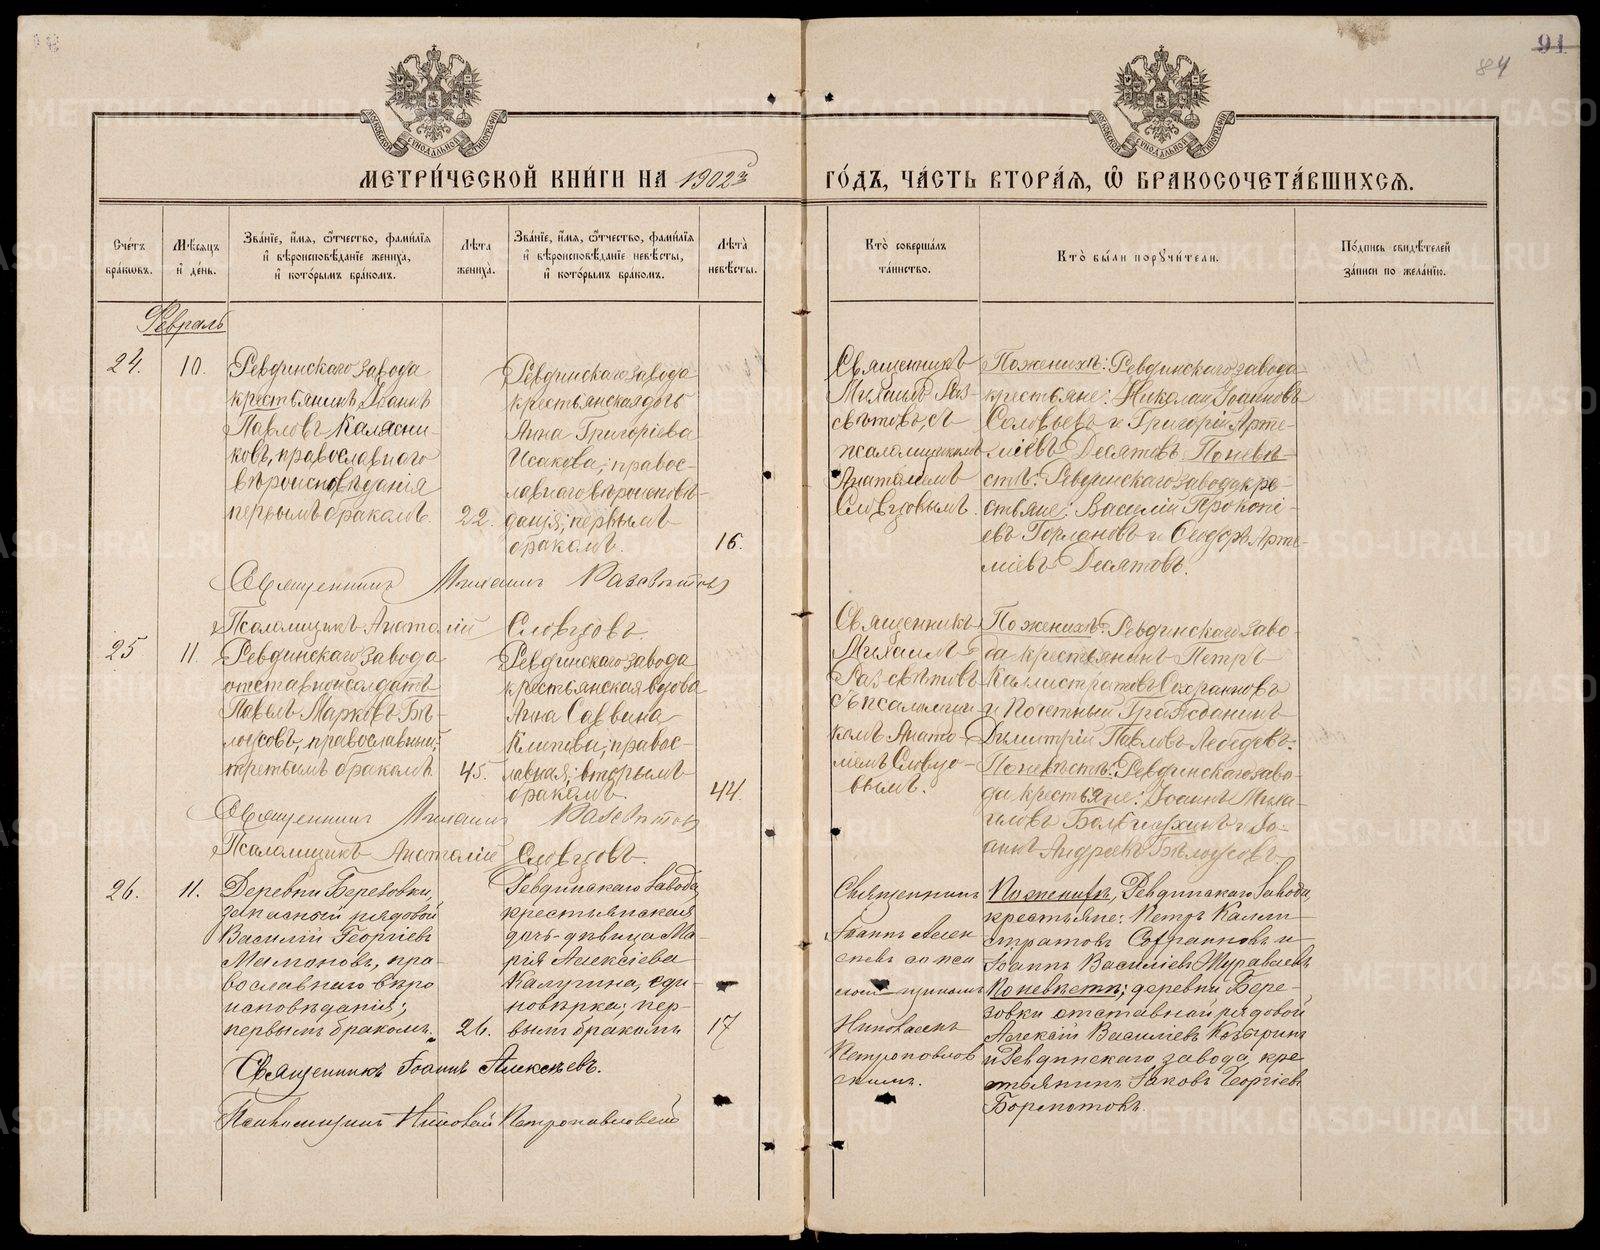 91
84
МОСКОВСКОЙ СѴНОДАЛЬНОЙ ТИПОГРАФІИ
МОСКОВСКОЙ СѴНОДАЛЬНОЙ ТИПОГРАФІИ
МЕТРИ́ЧЕСКОЙ КНИ́ГИ НА 1902й
ГО́ДЪ, ЧА́СТЬ ВТОРА́Ѧ, Ѽ БРАКОСОЧЕТА́ВШИХСѦ.
Сче́тъ бра́кѡвъ.
Мѣ́сѧцъ и҆ де́нь.
Зва́нїе, и҆́мѧ, ѻ҆́тчество, фами́лїѧ
и҆ вѣроисповѣ́данїе жениха̀,
и҆ кото́рымъ бра́комъ.
Лѣ́та жениха̀.
Зва́нїе, и҆́мѧ, ѻ҆́тчество, фами́лїѧ
и҆ вѣроисповѣ́данїе невѣ́сты,
и҆ кото́рымъ бра́комъ.
Лѣ́та невѣ́сты.
Кто̀ соверша́лъ
та́инство.
Кто̀ бы́ли порꙋчи́тели.
По́дпись свидѣ́телей
за́писи по жела́нїю.
Февраль
24.
10.
Ревдинскаго завода
крестьянинъ Іоаннъ
Павловъ Калясни-
ковъ, православнаго
вѣроисповѣданія
первымъ бракомъ.
22.
Ревдинскаго завода
крестьянская дочь
Анна Григоріева
Исакова, правос-
лавнаго вѣроисповѣ-
данія; первымъ
бракомъ.
16.
Священникъ
Михаилъ Раз-
свѣтовъ, съ
псаломщикомъ
Анатоліемъ
Словцовымъ.
По женихѣ: Ревдинскаго завода
крестьяне: Николай Іоанновъ
Соловьевъ и Григорій Арте-
міевъ Десятовъ. По невѣ-
стѣ: Ревдинскаго завода кре-
стьяне: Василій Прокопі-
евъ Горлановъ и Ѳеодоръ Арте-
міевъ Десятовъ.
Священникъ Михаилъ Разсвѣтовъ
Псаломщикъ Анатолій Словцовъ.
25
11.
Ревдинскаго завода
отставной солдатъ
Павелъ Марковъ Бѣ-
лоусовъ, православный;
третьимъ бракомъ.
45.
Ревдинскаго завода
крестьянская вдова
Анна Саввина
правос-
лавная; вторымъ
бракомъ.
44.
Священникъ
Михаилъ
Разсвѣтовъ
съ псаломщи-
комъ Анато-
ліемъ Словцо-
вымъ.
По женихѣ: Ревдинскаго заво-
да крестьянинъ Петръ
Каллистратовъ Сохранновъ
и почетный гражданинъ
Димитрій Павловъ Лебедевъ.
По невѣстѣ: Ревдинскаго заво-
да крестьяне: Іоаннъ Миха-
иловъ и Іо-
аннъ Андреевъ Бѣлоусовъ.
Священникъ Михаилъ Разсвѣтовъ
Псаломщикъ Анатолій Словцовъ.
26.
11.
Деревни Березовки,
запасный рядовой
Василій Георгіевъ
Мамоновъ, пра-
вославнаго вѣро
исповѣданія;
первымъ бракомъ.
26.
Ревдинскаго завода,
крестьянская
дочь-дѣвица Ма-
рія Алексіева
Калугина, еди-
новѣрка; пер-
вымъ бракомъ
17
Священникъ
Іоаннъ Алек
сѣевъ со пса
ломщикомъ
Николаемъ
Петропавлов
скимъ.
По женихѣ, Ревдинскаго завода,
крестьяне: Петръ Калли
стратовъ Сохранновъ и
Іоаннъ Василіевъ Журавлевъ
По невѣстѣ; деревни Бере-
зовки отставной рядовой
Алексій Василіевъ Козыринъ
и Ревдинскаго завода, кре
стьянинъ Іаковъ Георгіевъ
Бормотовъ.
Священникъ Іоаннъ Алексѣевъ.
Псаломщикъ Николай Петропавловскій
METRIKI.GASO-URAL.RU